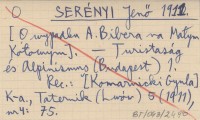 O SERÉNYI Jenő 1911.
[O wypadku A. Bibera na Małym
Kołowym]. — Turistaság
és Alpinizmus (Budapest), 1
Rec.: [Komarnicki Gyula]
K-a, Taternik (Lwów) 5 (1911),
nr 4: 75.